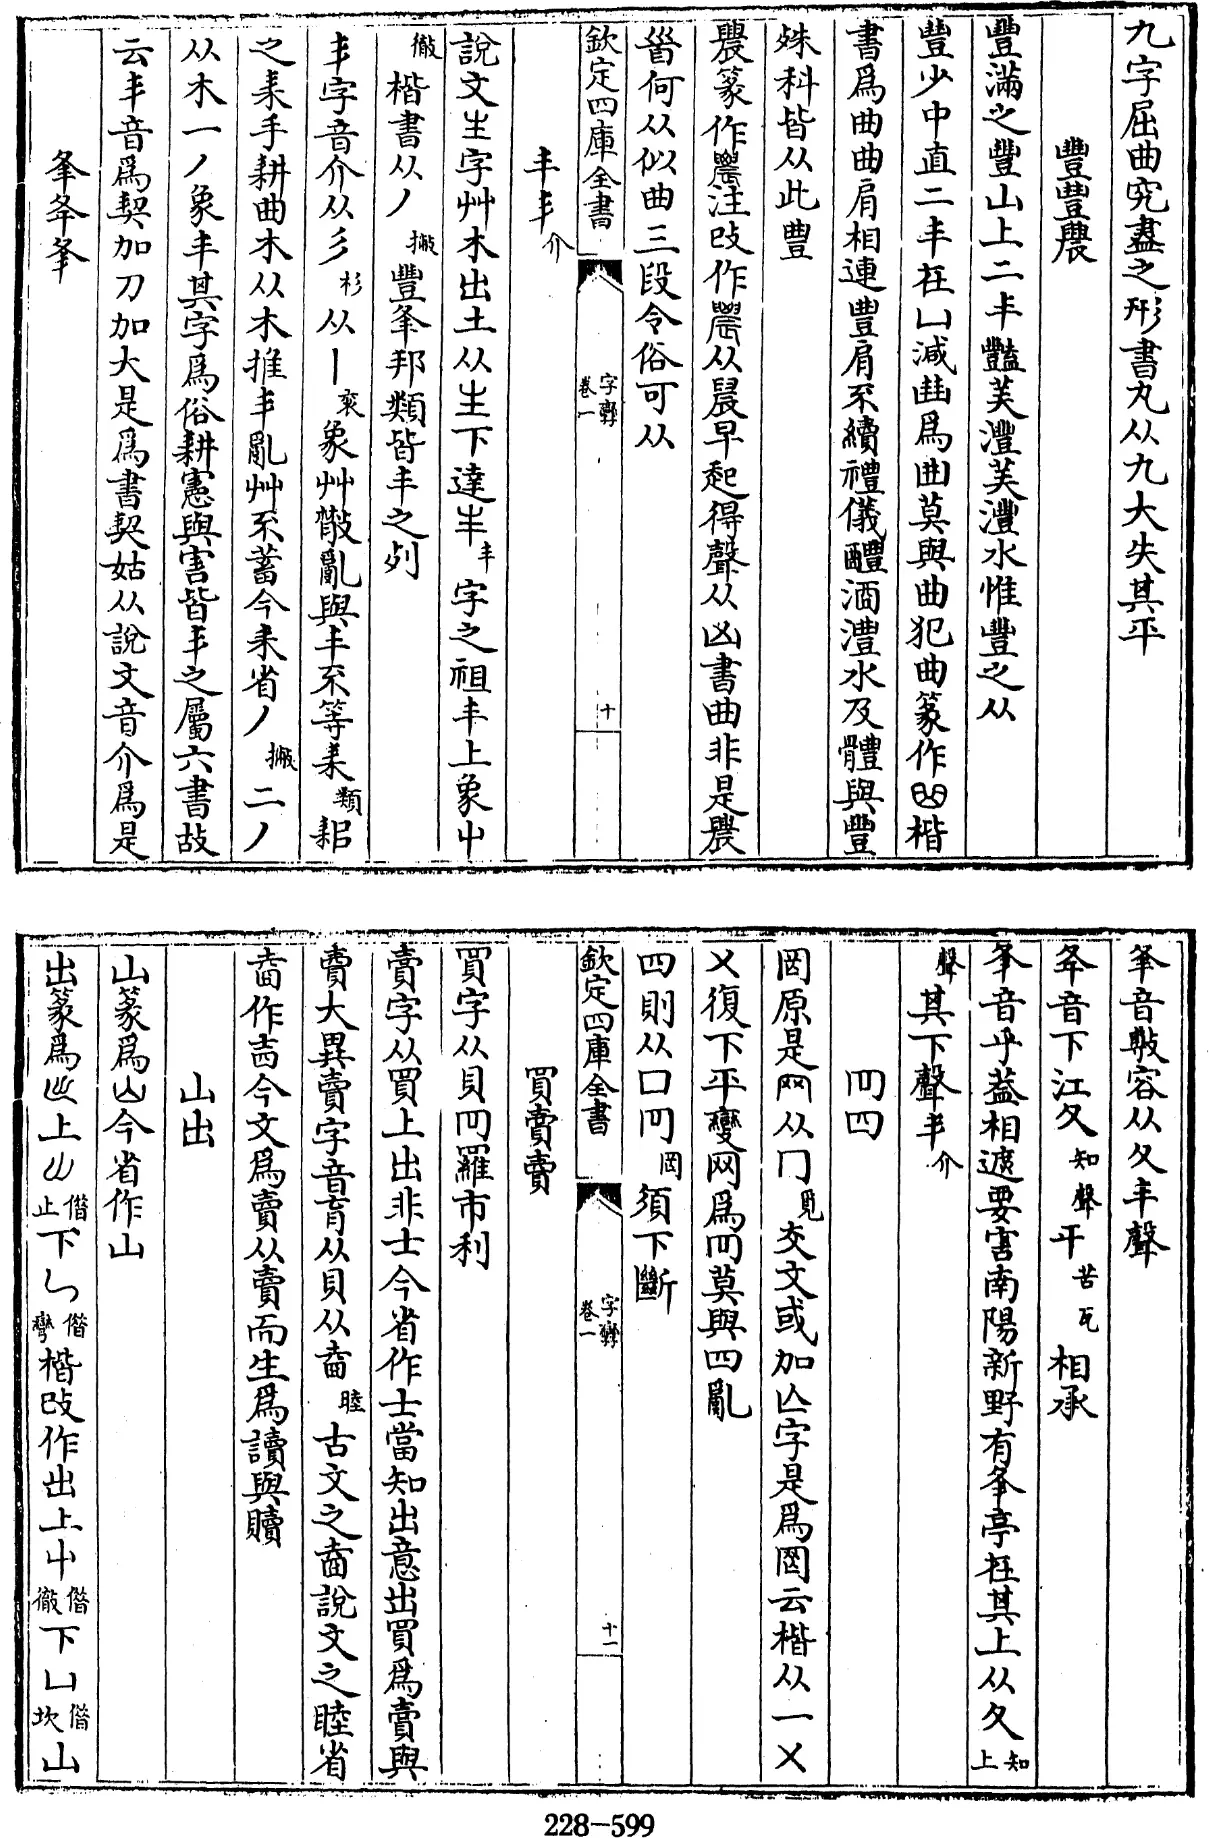 九字屈曲究盡之形書丸从九大失其平
豐豊農
豐滿之豐山上二丰豔芙灃芙灃水惟豐之从
豐少中直二丰在凵減𠁳為曲莫與曲犯曲篆作𠚖楷
書爲曲曲肩相連豊肩不續禮儀醴酒澧水及體與豐
殊科皆从此豊
農篆作注改作从晨早起得聲从凶書曲非是農
𦥑何从似曲三段令俗可从
欽定四庫全書
字孿
卷一
十
丰丯介
說文生字艸木出土从𡉉下達𠂒丰字之祖丰上象屮
徹楷書从丿撇豐夆邦類皆丰之列
丯字音介从彡杉从丨衮象艸散亂與丰不等耒類耜
之耒手耕曲木从木推丯亂艸不蓄今耒省丿撇二丿
从木一丿象丰其字爲俗耕憲與害皆丯之屬六書故
云丯音爲契加刀加大是爲書契姑从說文音介爲是
夆夅夆
夆音敷容从夂丰聲
夅音下江夂知聲㐄苦瓦相承
夆音乎葢相遮要害南陽新野有夆亭在其上从夂知上
聲其下聲丯介
罒四
罔原是网从冂覓交文或加亾字是爲罔云楷从一㐅
㐅復下平變网爲罒莫與四亂
四則从口罒罔須下斷
欽定四庫全書
字孿
卷一
十一
買賣𧶠
買字从貝罒羅巿利
賣字从買上出非士今省作士當知出意出買爲賣與
𧶠大異𧶠字音育从貝从㚆睦古文之㚆說文之睦省
㚆作𡴆今文爲賣从賣而生爲讀與贖
山出
山篆爲今省作山
出篆爲上止偕下乚彎偕楷改作出上屮徹偕下凵坎偕山
228-599